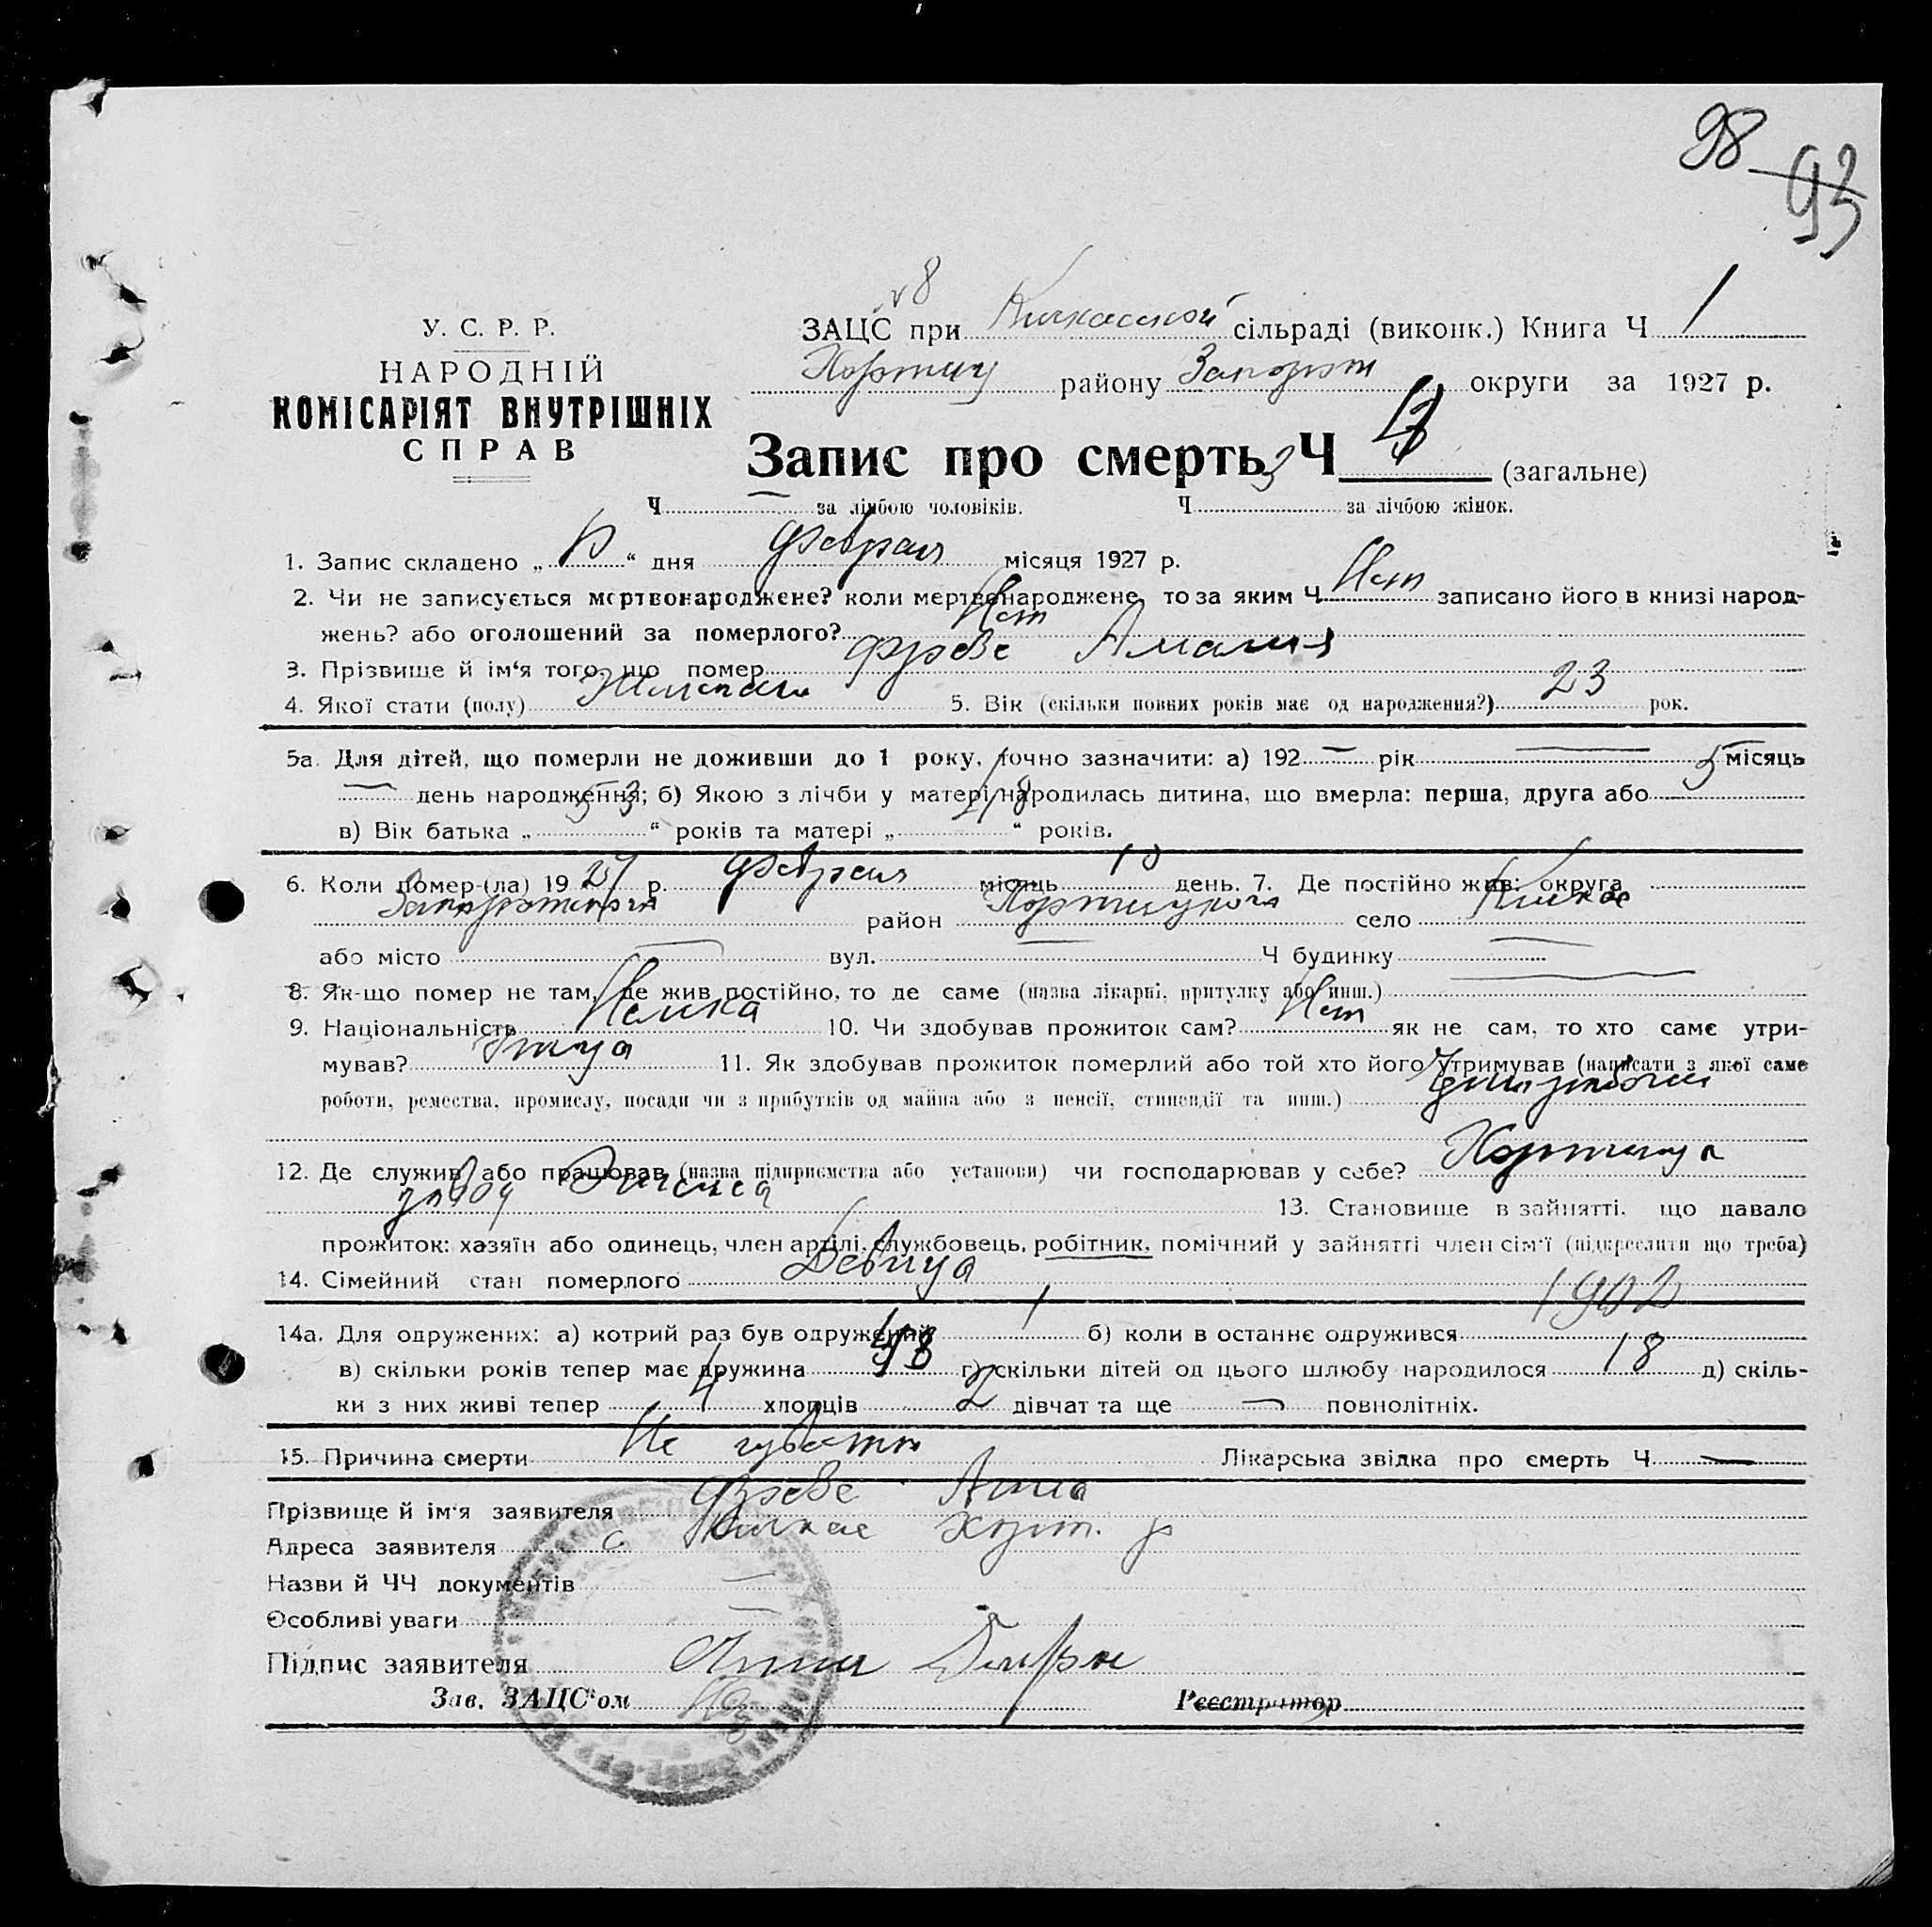 98 93
№ 8
У. С. Р. Р.
НАРОДНІЙ
КОМІСАРІЯТ ВНУТРІШНІХ
СПРАВ
ЗАЦС при Кичкасской сільраді (виконк.) Книга Ч 1
Хортиц району Запорож округи за 1927 р.
Запис про смерть Ч 3 (загальне)
Ч — за лічбою чоловіків. Ч за лічбою жінок.
1. Запис складено „ “ дня Февраля місяця 1927 р.
2. Чи не записується мертвонароджене? коли мертвонароджене, то за яким Ч Нет записано його в книзі народ-
жень? або оголошений за померлого? Нет
3. Прізвище й ім‘я того, що помер Фрезе Амалия
4. Якої стати (полу) Женскаго 5. Вік (скільки повних років має од народження?) 23 рок.
5а. Для дітей, що померли не доживши до 1 року, точно зазначити: а) 192 — рік — місяць
— день народження; б) Якою з лічби у матері народилась дитина, що вмерла: перша, друга або 5
в) Вік батька „ 53 “ років та матері „ 48 “ років.
6. Коли помер-(ла) 19 27 р. Февраля місяць 10 день. 7. Де постійно жив: округа
Запорожского район Хортицкого село Кичкас
або місто — вул. — Ч будинку —
8. Як-що помер не там, де жив постійно, то де саме (назва лікарні, притулку або инш.) —
9. Національність Немка 10. Чи здобував прожиток сам? Нет як не сам, то хто саме утри-
мував? Отец 11. Як здобував прожиток померлий або той хто його утримував (написати з якої саме
роботи, ремества, промислу, посади чи з прибутків од майна або з пенсії, стипендії та инш.)
12. Де служив або працював (назва підприємства або установи) чи господарював у себе? Хортица
завод Энгельса 13. Становище в зайнятті, що давало
прожиток: хазяїн або одинець, член артілі, службовець, робітник, помічний у зайнятті член сім‘ї (підкреслити що треба)
14. Сімейний стан померлого Девица
14а. Для одружених: а) котрий раз був одружений 1 б) коли в останнє одружився 1902
в) скільки років тепер має дружина 48 г) скільки дітей од цього шлюбу народилося 18 д) скіль-
ки з них живі тепер 4 хлопців 2 дівчат та ще — повнолітніх.
15. Причина смерти Лікарська звідка про смерть Ч —
Прізвище й ім‘я заявителя Фрезе Анна
Адреса заявителя с Кичкас Хорт. р
Назви й ЧЧ документів —
Особливі уваги —
Підпис заявителя Анна
Зав. ЗАЦС‘ом
Реєстратор